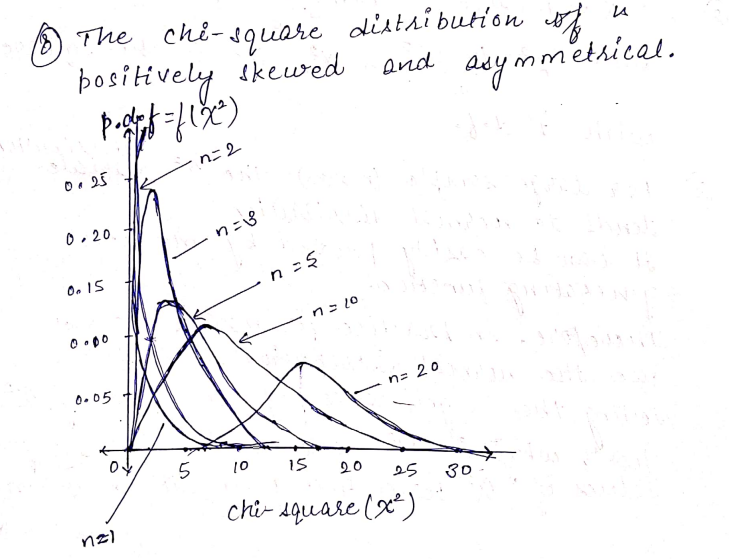 ⑧ The chi-square distribution is
positively skewed and asymmetrical.
p.d.f = f(χ²)
n=2
0.25
n=3
0.20
n=5
0.15
n=10
0.00
n=20
0.05
0 5 10 15 20 25 30
chi-square (χ²)
n=1